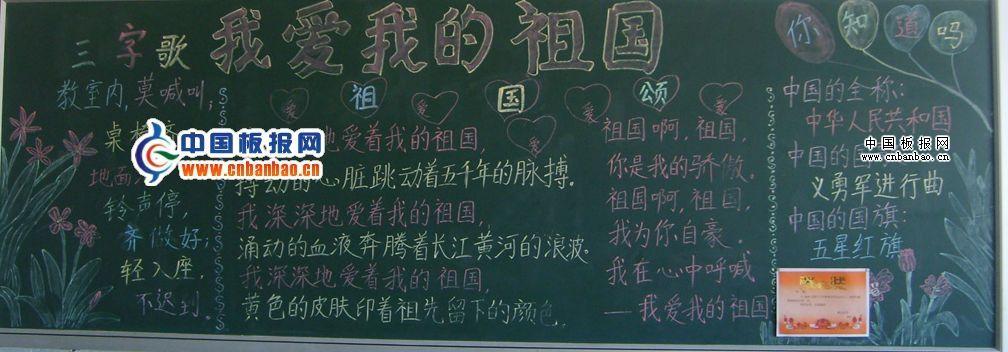 三字歌
教室内,莫喊叫;
桌
地面
铃声停,
齐做好;
轻入座,
不迟到.
我爱我的祖国
爱 祖 爱 国 爱 颂 爱
爱
地爱着我的祖国,
搏动的心脏跳动着五千年的脉搏.
我深深地爱着我的祖国,
涌动的血液奔腾着长江黄河的浪波.
我深深地爱着我的祖国
黄色的皮肤印着祖先留下的颜色.
祖国啊,祖国
你是我的骄傲.
祖国啊,祖国,
我为你自豪.
我在心中呼喊
——我爱我的祖国
你知道吗
中国的全称:
中华人民共和国
中国的国
义勇军进行曲.
中国的国旗:
五星红旗
中国板报网
www.cnbanbao.cn
中国板报网
www.cnbanbao.cn